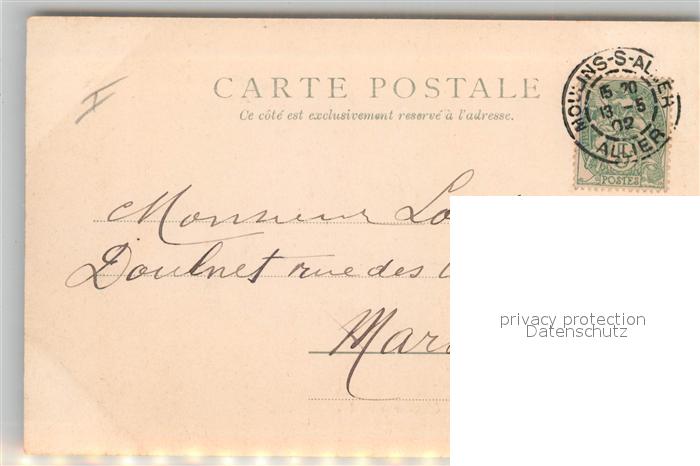 CARTE POSTALE
Ce côté est exclusivement reservé à l'adresse.
MOULINS-S-ALLIER
15 20
13 5
02
ALLIER
POSTES
Monsieur
rue des
privacy protection
Datenschutz